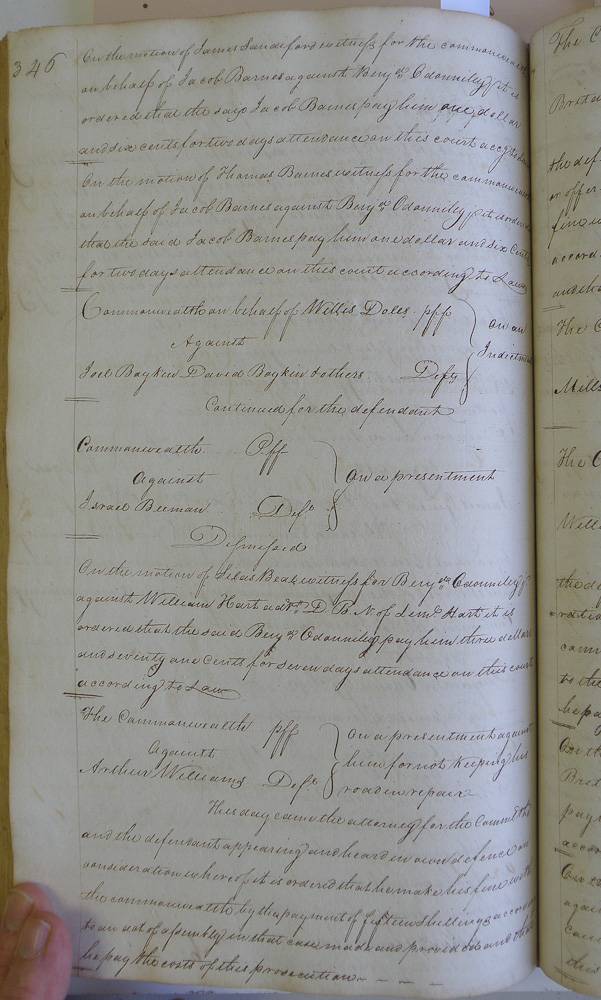 346
On the motion of James Sandiford witness for the commonwealth
on behalf of Jacob Barnes against Benj.n Odonniley it is
ordered that the said Jacob Barnes pay him one dollar
and six cents for two days attendance on this court accg to Law
On the motion of Thomas Barnes witness for the commonwealth
on behalf of Jacob Barnes against Benj.n Odonniley it is ordered
that the said Jacob Barnes pay him one dollar and six Cents
for two days attendance on this court according to Law
Commonwealth on behalf of Willis Doles pff
on an
Against
Indictment
Joel Boykin David Boykin & others Defts
Continued for the defendant
Commonwealth Pff
Against
on a presentment
Israel Beeman Deft
Dismissed
On the motion of Silas Beal witness for Benj.n Odonniley
against William Hart adr. D. B. N. of Hart it is
ordered that the said Benj.n Odonniley pay him three dollars
and seventy one Cents for seven days attendance on this court
according to Law
The Commonwealth pff
on a presentment against
Against
him for not keeping his
Arthur Williams Deft
road in repair
This day came the attorney for the Commth
and the defendant appearing and heard in own defence on
consideration whereof it is ordered that he make his fine with
the commonwealth by the payment of fifteen Shillings accord
to an act of assembly in that case made and provided and that
he pay the costs of this prosecution
The C
Brita
the def
or offer
fine
accord
The C
Mills
The C